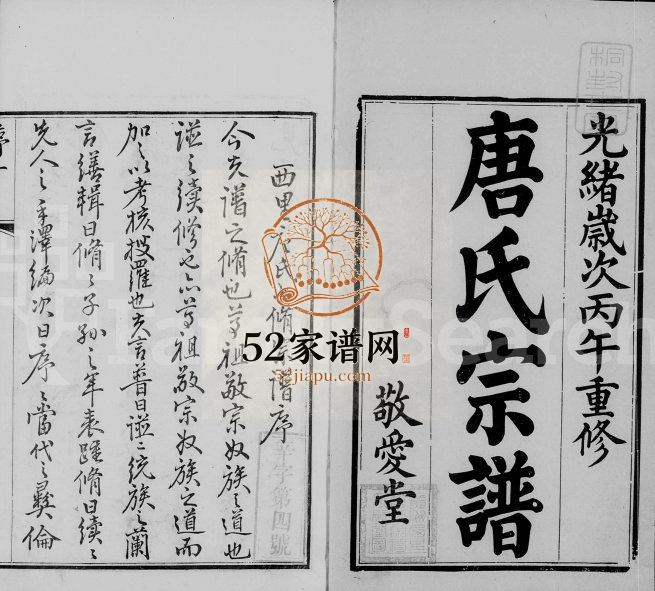 光緒歲次丙午重修
唐氏宗譜
敬愛堂
西里唐氏脩譜序
今夫譜之脩也尊祖敬宗收族之道也
譜之續修也亦尊祖敬宗收族之道而
加之以考核搜羅也夫言普曰譜統族之蘭
言繕輯曰脩之子孫之年表踵脩曰續之
先人之手澤編次曰序之當代之彝倫
52家谱网
52jiapu.com
字第四號